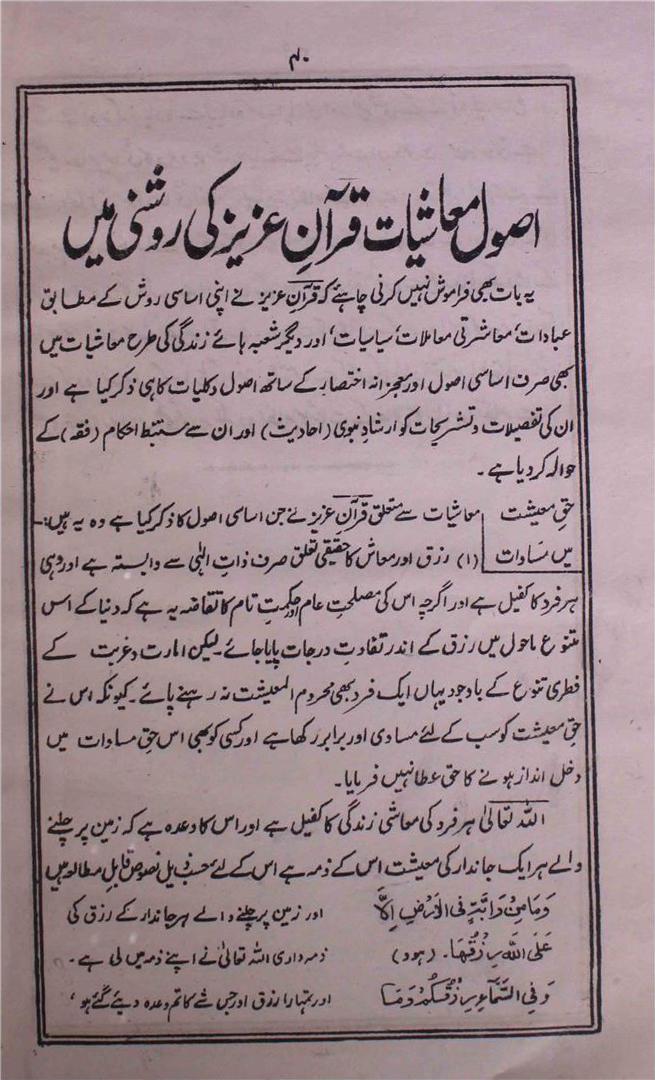 ۴۰
اصول معاشیات قرآنِ عزیز کی روشنی میں
یہ بات بھی فراموش نہیں کرنی چاہئے کہ قرآنِ عزیز نے اپنی اساسی روش کے مطابق
عبادات، معاشرتی معاملات، سیاسیات، اور دیگر شعبہ ہائے زندگی کی طرح معاشیات میں
بھی صرف اساسی اصول اور معجزانہ اختصار کے ساتھ اصول و کلیات کا ہی ذکر کیا ہے اور
ان کی تفصیلات و تشریحات کو ارشادِ نبوی (احادیث) اور ان سے مستنبط احکام (فقہ) کے
حوالہ کر دیا ہے۔
حقِ معیشت معاشیات سے متعلق قرآنِ عزیز نے جن اساسی اصول کا ذکر کیا ہے وہ یہ ہیں:-
میں مساوات (۱) رزق اور معاش کا حقیقی تعلق صرف ذاتِ الٰہی سے وابستہ ہے اور وہی
ہر فرد کا کفیل ہے اور اگرچہ اس کی مصلحتِ عام اور حکمتِ تام کا تقاضہ یہ ہے کہ دنیا کے اس
متنوع ماحول میں رزق کے اندر تفاوتِ درجات پایا جائے۔ لیکن امارت و غربت کے
فطری تنوع کے باوجود یہاں ایک فرد بھی محروم المعیشت نہ رہنے پائے۔ کیونکہ اس نے
حقِ معیشت کو سب کے لئے مساوی اور برابر رکھا ہے اور کسی کو بھی اس حقِ مساوات میں
دخل انداز ہونے کا حق عطا نہیں فرمایا۔
اللہ تعالیٰ ہر فرد کی معاشی زندگی کا کفیل ہے اور اس کا وعدہ ہے کہ زمین پر چلنے
والے ہر ایک جاندار کی معیشت اس کے ذمہ ہے اس کے لئے حسبِ ذیل نصوص قابلِ مطالعہ ہیں
وَمَا مِنْ دَابَّةٍ فِی الْاَرْضِ اِلَّا اور زمین پر چلنے والے ہر جاندار کے رزق کی
عَلَی اللّٰهِ رِزْقُهَا۔ (ہود) ذمہ داری اللہ تعالیٰ نے اپنے ذمہ میں لی ہے۔
وَفِی السَّمَآءِ رِزْقُكُمْ وَمَا اور تمہارا رزق اور جس شے کا تم وعدہ دیئے گئے ہو،